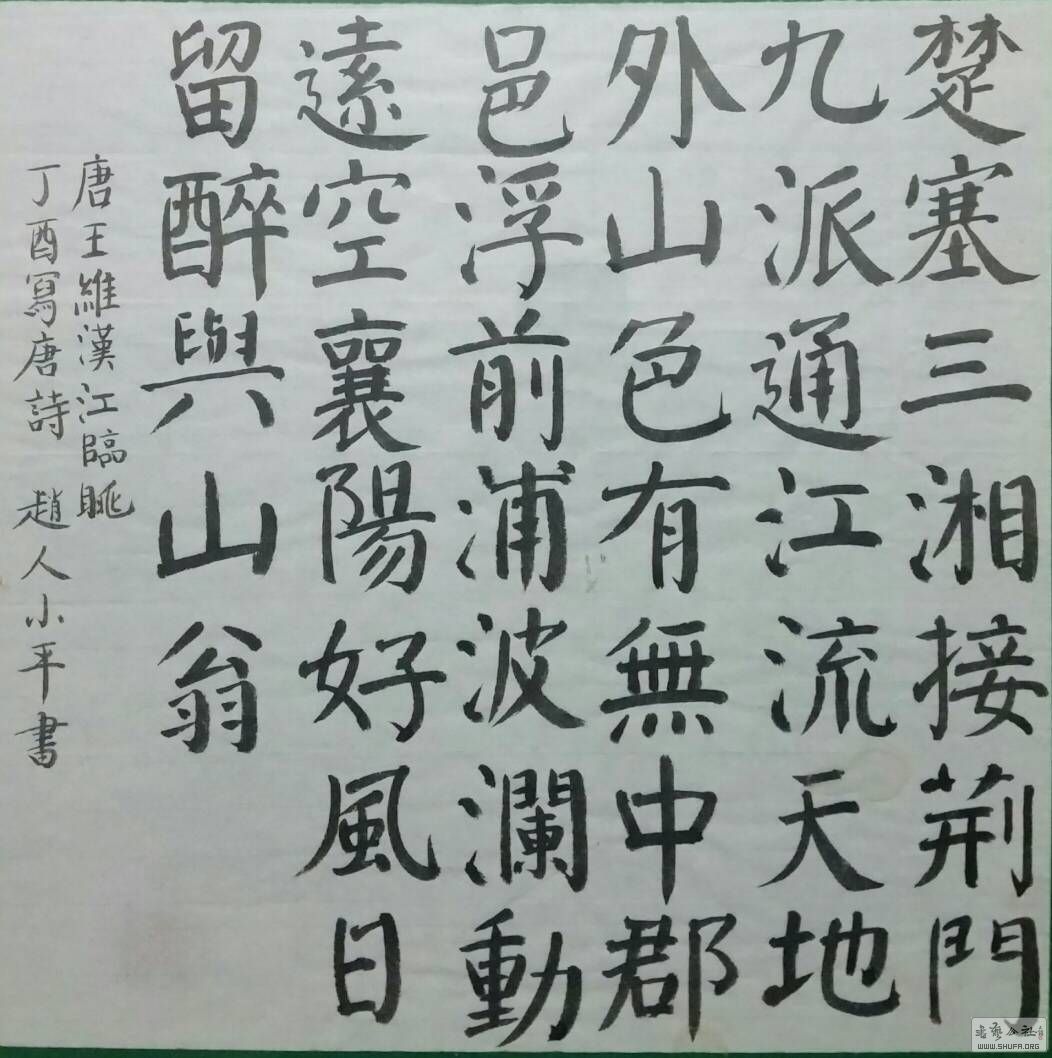 楚塞三湘接荆門
九派通江流天地
外山色有無中郡
邑浮前浦波瀾動
遠空襄陽好風日
留醉與山翁
唐王維漢江臨眺
丁酉寫唐詩 趙人小平書
书艺公社
WWW.SHUFA.ORG